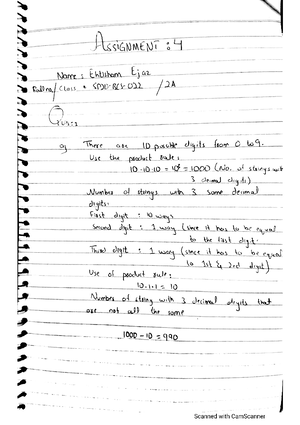 ASSIGNMENT : 4
Name : Ehtisham Ejaz
Rollno / Class : SP20-BCS-022 / 2A
a) There are 10 possible digits from 0 to 9.
Use the product rule:
10·10·10 = 10³ = 1000 (No. of strings with
3 decimal digits)
Number of strings with 3 same decimal
digits.
First digit : 10 ways
Second digit : 1 way (since it has to be equal
to the first digit.
Third digit : 1 way (since it has to be equal
to 1st & 2nd digit)
Use of product rule:
10·1·1 = 10
Number of string with 3 decimal digits that
are not all the same
1000 - 10 = 990
Scanned with CamScanner